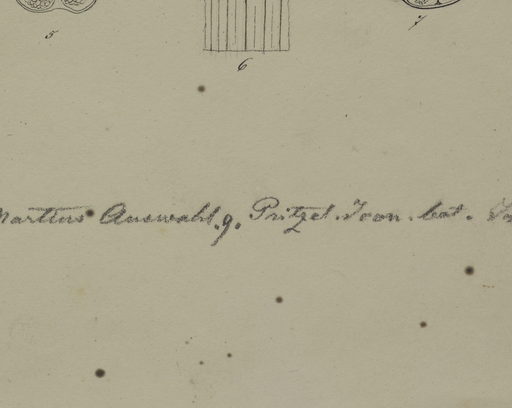 5 6 7
Martius Auswahl. 9. Pritzel. Icon. bot.